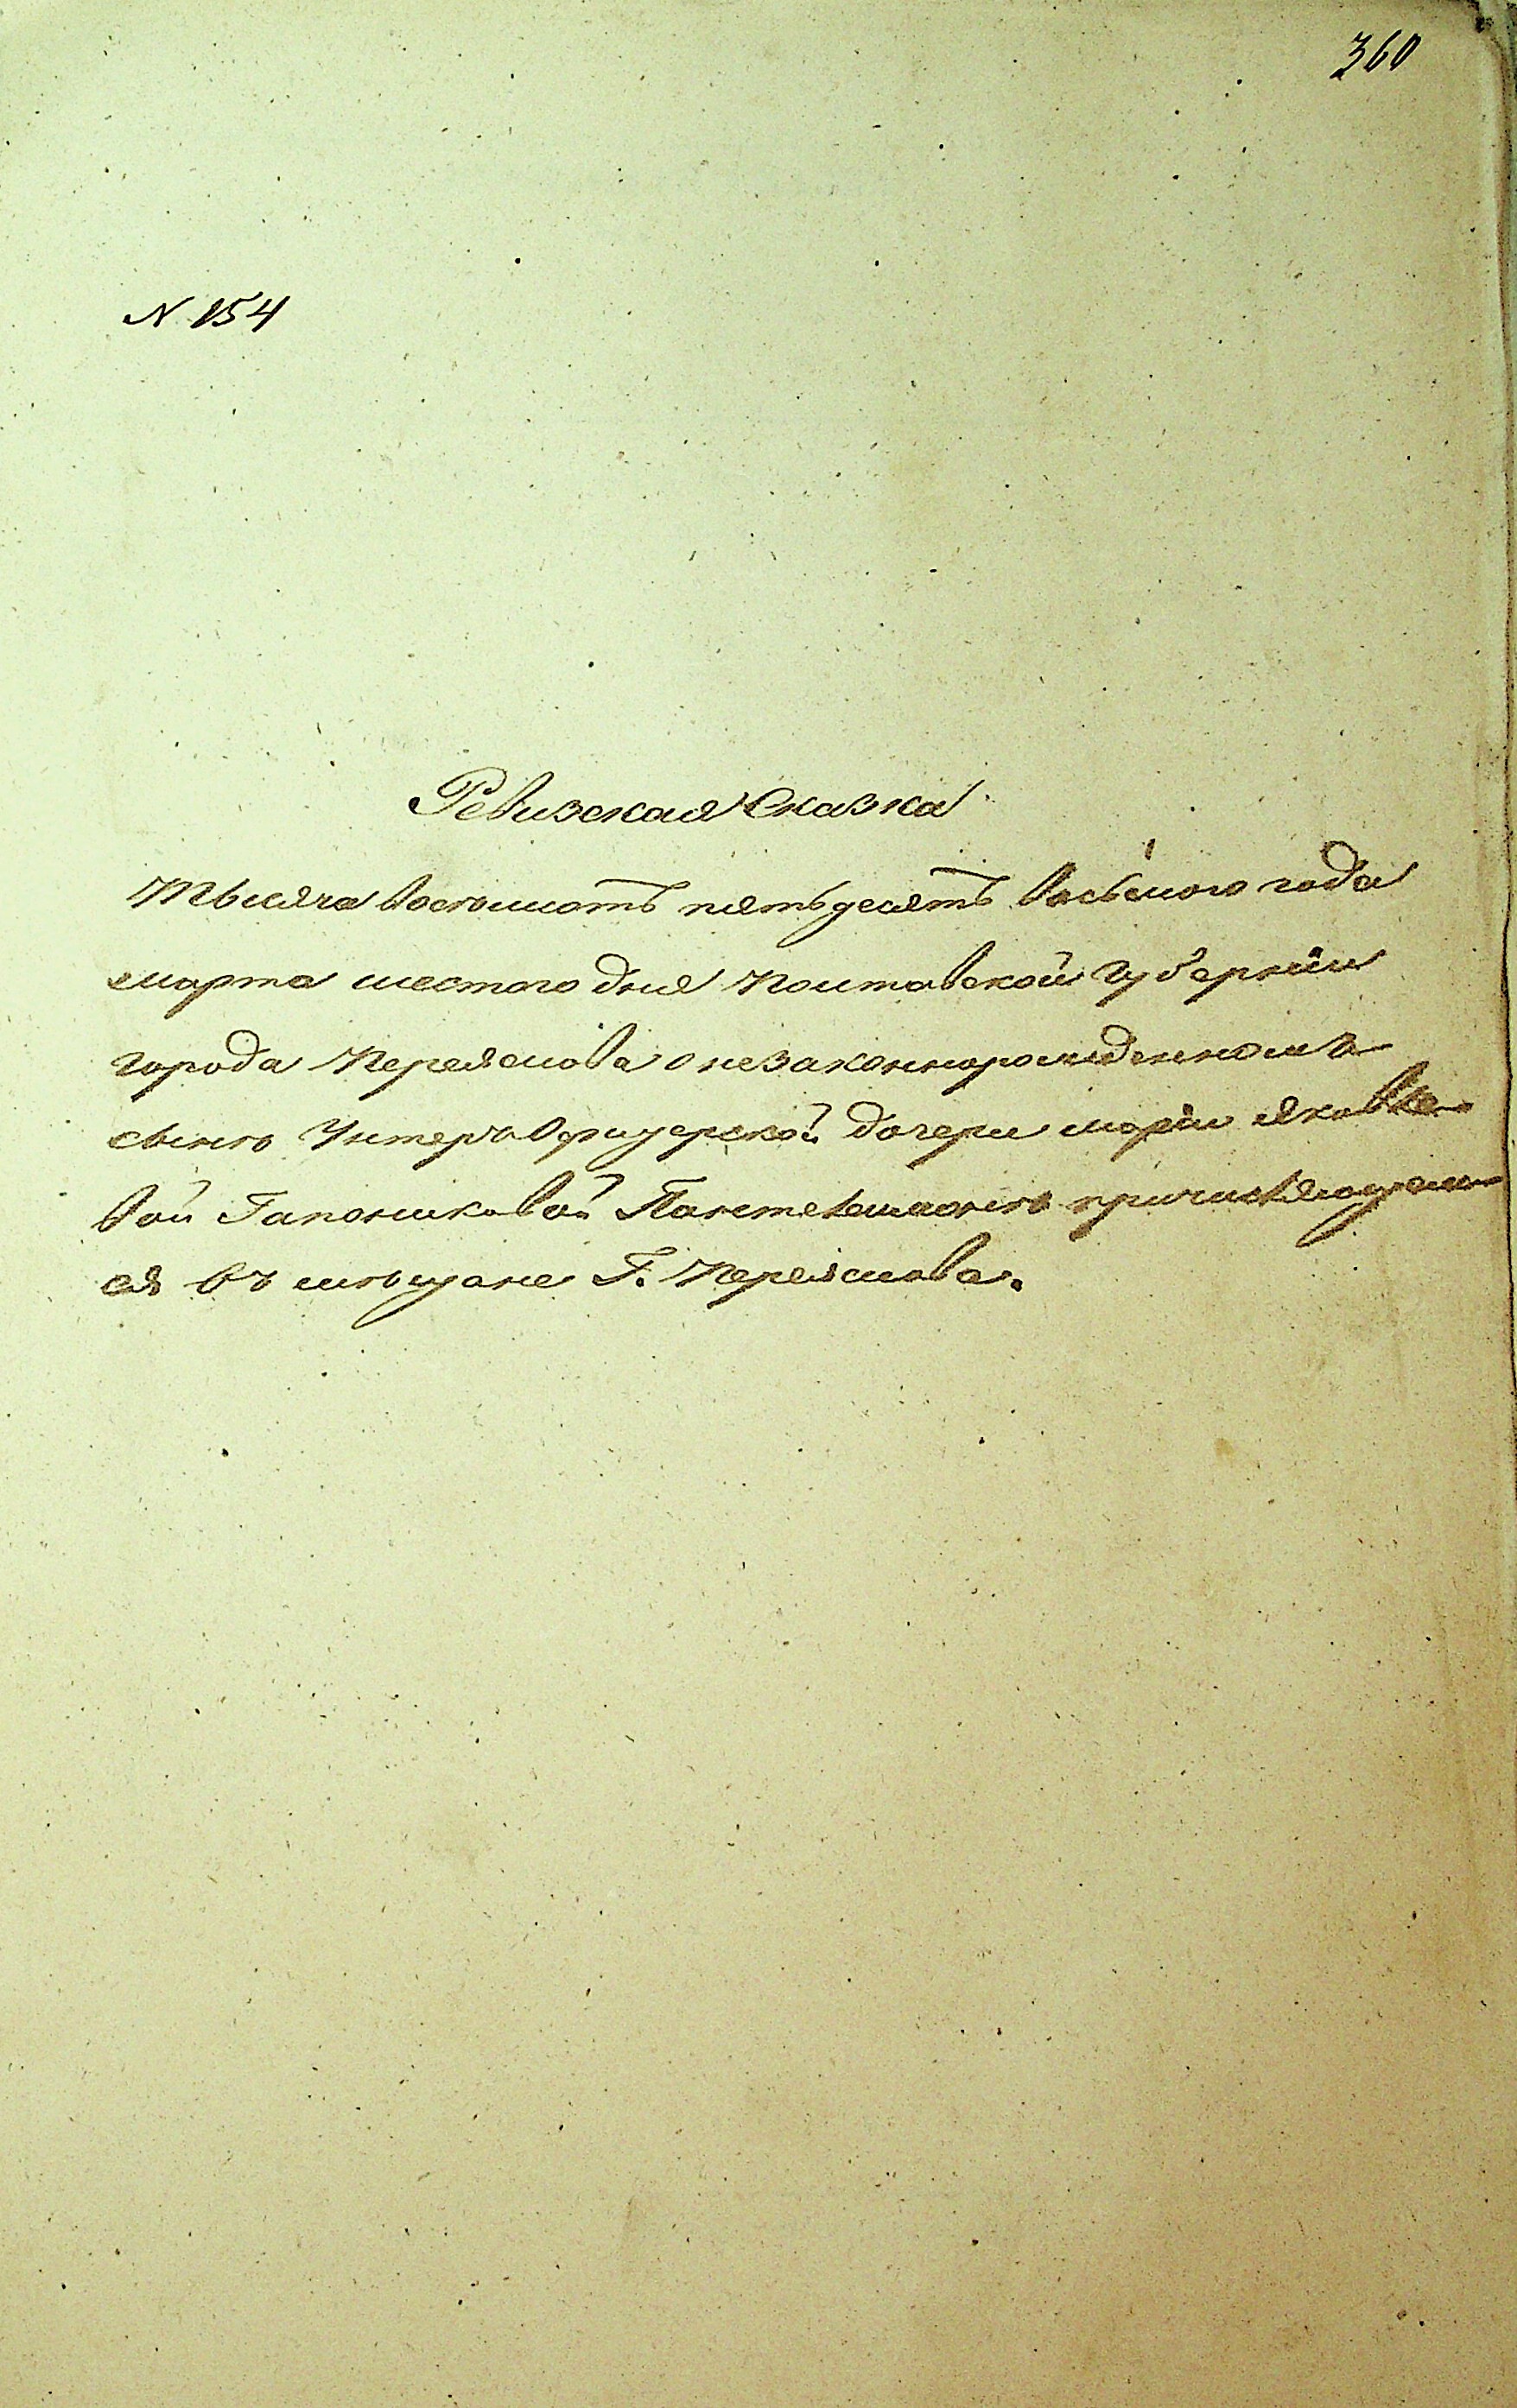 360
N 154
Ревизская Сказка
Тысяча восемьсотъ пятьдесятъ восьмого года
марта шестого дня Полтавской губерніи
города Переяслова о незаконнорожденномъ
сынѣ Унтеръ Офицерской дочери Маріи Яковле
вой Гапониковой Пантелеимонѣ причисляющем
ся въ мѣщане Г. Переяслова.